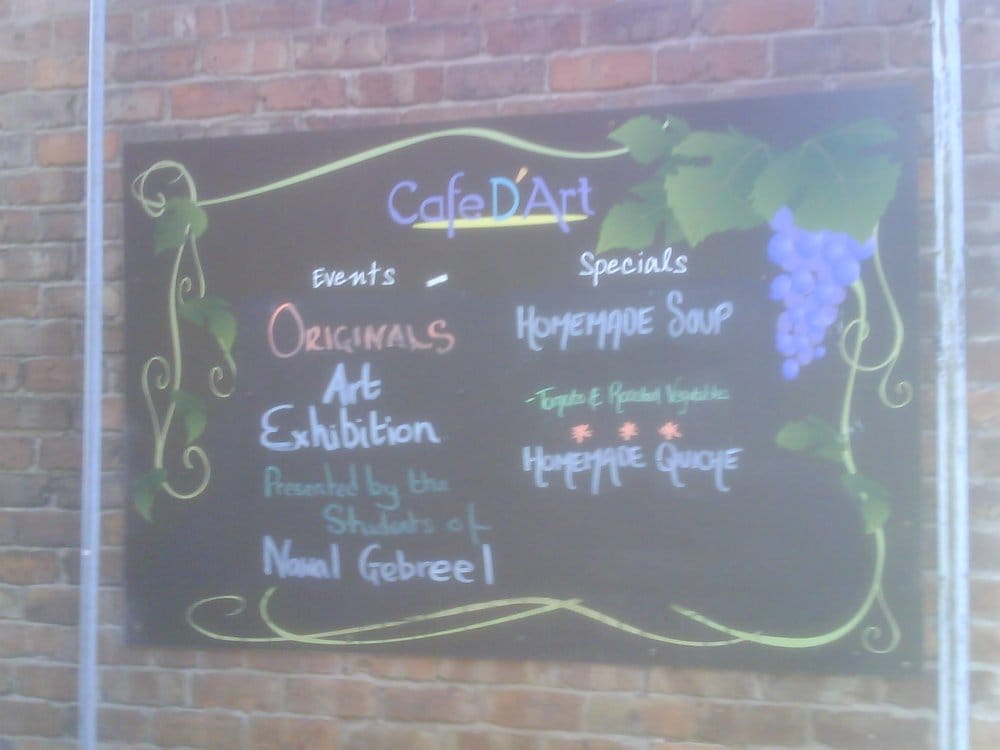 Cafe D'Art
Events -
ORIGINALS
Art
Exhibition
Presented by the
Students of
Nawal Gebreel
Specials
HOMEMADE SOUP
- Tomato & Roasted Vegetable
* * *
HOMEMADE QUICHE